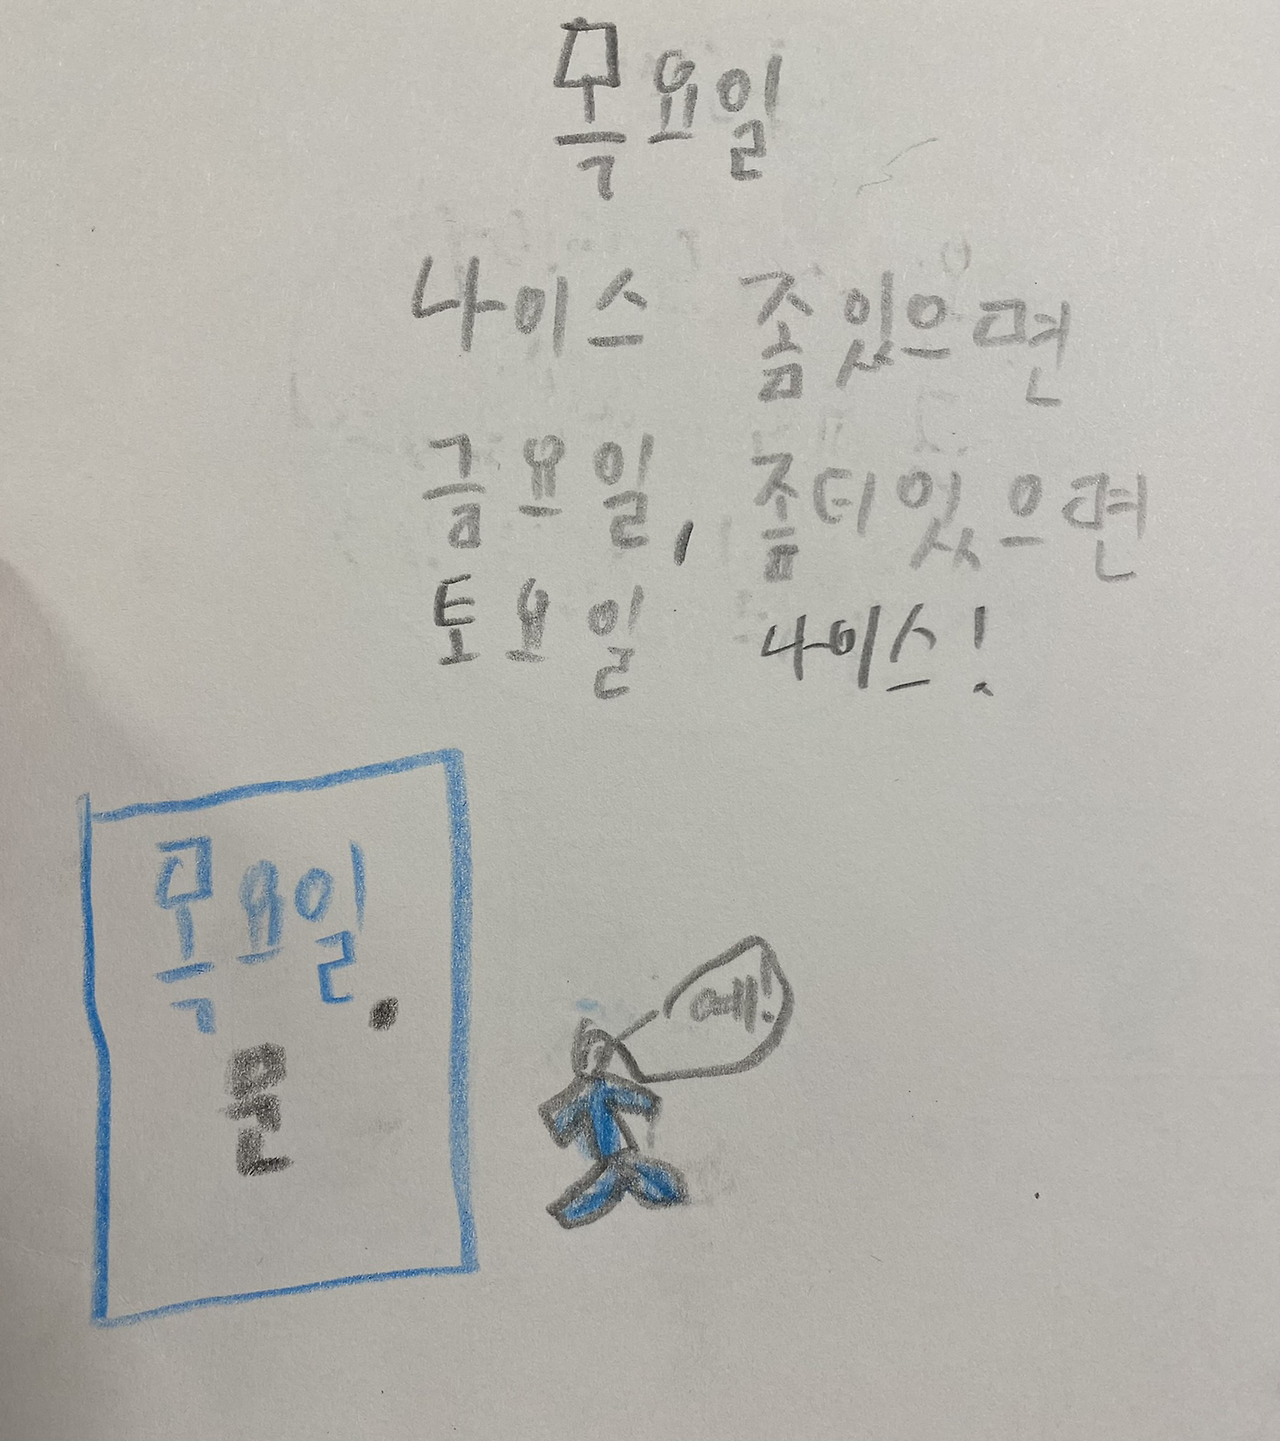 목요일
나이스 좀있으면
금요일, 좀더있으면
토요일 나이스!
목요일.
문
예!